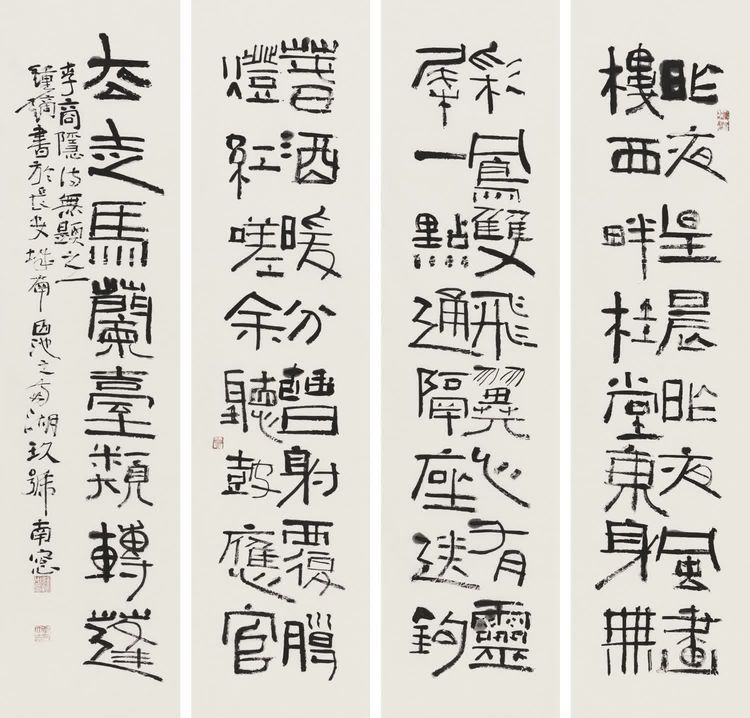 昨夜星晨昨夜風畫
樓西畔桂堂東身無
彩鳳雙飛翼心有靈
犀一點通隔座送鈎
春酒暖分曹射覆臘
燈紅嗟余聽鼓應官
去走馬蘭臺類轉蓬
李商隱詩無題之一
書於長安城南池之南湖玖號南窗